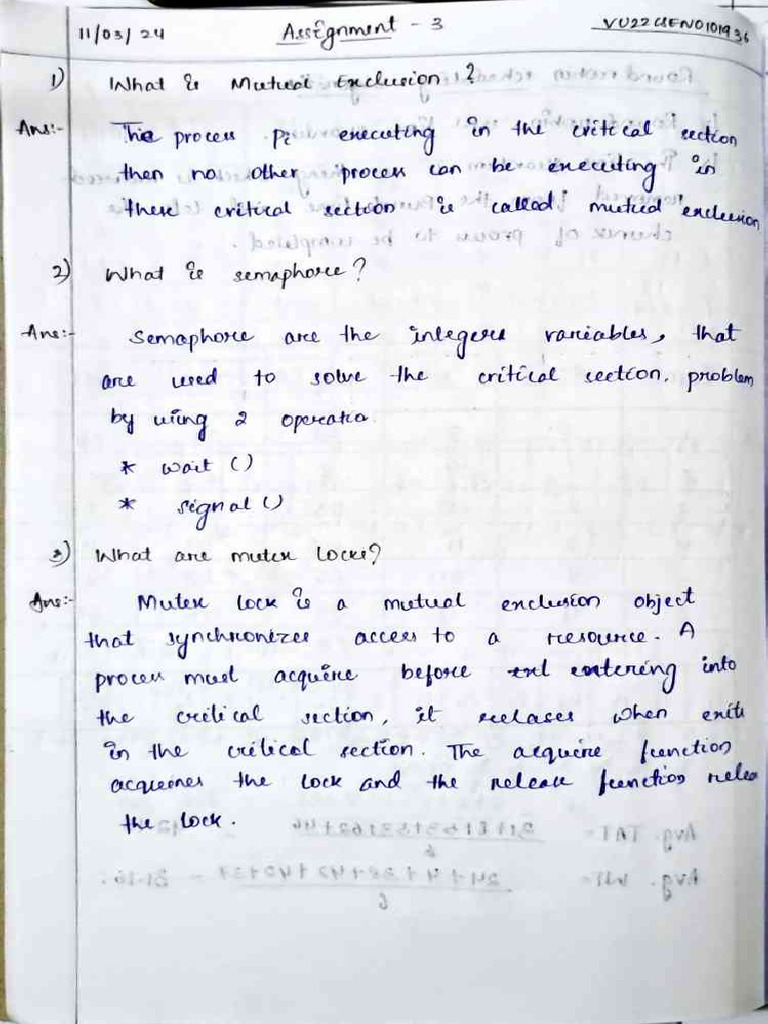 11/03/24 Assignment - 3 VU22CSEN0101936
1) What is Mutual Exclusion?
Ans:- The process Pi executing in the critical section
then no other process can be executing in
these critical section is called mutual exclusion
2) What is semaphore?
Ans:- Semaphore are the integers variables, that
are used to solve the critical section. problem
by using 2 operatio
* wait ()
* signal ()
3) What are mutex locks?
Ans:- Mutex lock is a mutual exclusion object
that synchronizes access to a resource. A
process must acquire before entering into
the critical section, it relases when exits
in the critical section. The acquire function
acquires the lock and the release function relea
the lock.